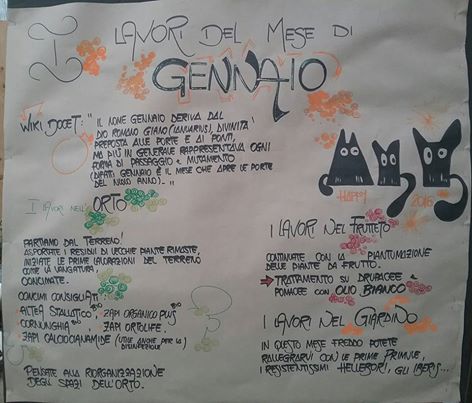 I LAVORI DEL MESE DI
GENNAIO
WIKI DOCET: "IL NOME GENNAIO DERIVA DAL
DIO ROMANO GIANO (IANUARIUS), DIVINITÀ
PREPOSTA ALLE PORTE E AI PONTI,
MA PIÙ IN GENERALE RAPPRESENTAVA OGNI
FORMA DI PASSAGGIO E MUTAMENTO
(DIFATI GENNAIO È IL MESE CHE APRE LE PORTE
DEL NUOVO ANNO)..."
HAPPY 2016
I LAVORI NELL'ORTO
PARTIAMO DAL TERRENO!
ASPORTATE I RESIDUI DI VECCHIE PIANTE RIMASTE,
INIZIATE LE PRIME LAVORAZIONI DEL TERRENO
COME LA VANGATURA,
CONCIMATE.
CONCIMI CONSIGLIATI:
ALTEA STALLATICO, ZAPI ORGANICO PLUS
CORNUNGHIA, ZAPI ORTOLIFE,
ZAPI CALCIOCIANAMIDE (UTILE ANCHE PER LA DISINFEZIONE)
PENSATE ALLA RIORGANIZZAZIONE
DEGLI SPAZI DELL'ORTO.
I LAVORI NEL FRUTTETO
CONTINUATE CON LA PIANTUMAZIONE
DELLE PIANTE DA FRUTTO.
→ TRATTAMENTO SU DRUPACEE
POMACEE CON OLIO BIANCO
I LAVORI NEL GIARDINO
IN QUESTO MESE FREDDO POTETE
RALLEGRARVI CON LE PRIME PRIMULE,
I RESISTENTISSIMI HELLEBORI, GLI IBERIS...